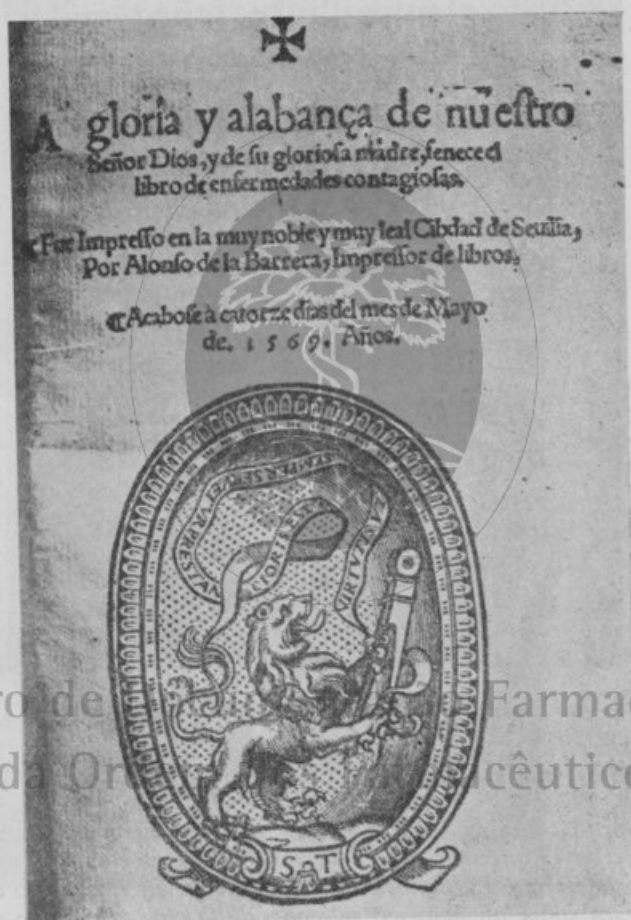 A gloria y alabança de nueſtro
Señor Dios, y de ſu glorioſa madre, fenece el
libro de enfermedades contagioſas.
Fue Impreſſo en la muy noble y muy leal Cibdad de Seuilla,
Por Alonſo de la Barrera, Impreſſor de libros.
Acaboſe à catorze dias del mes de Mayo
de. 1569. Años.
SEMPER SERVETVR PRESTAN
VIRTVTE
S T
ro de Farma
da Or cêutico